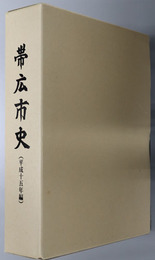 帯広市史
(平成十五年編)